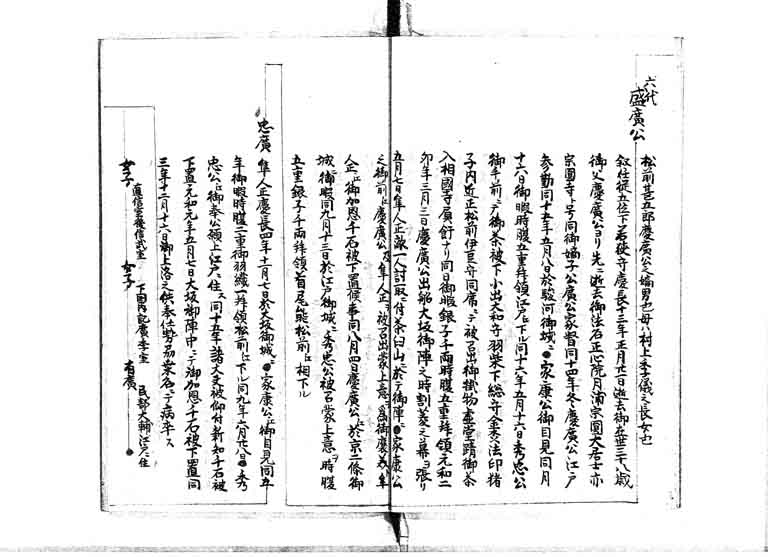 六代
盛廣公
松前甚五郎慶廣公之嫡男也母ハ村上季儀之長女也
叙任従五位下若狭守慶長十三年正月廿一日逝去御在世三十八歳
御父慶廣公ヨリ先ニ逝去御法名正心院月浦宗圓大居士亦
宗圓寺ト号同御嫡子公廣公家督同十四年冬慶廣公江戸
参勤同十五年五月八日於駿河御城ニ家康公御目見同月
十六日御暇時腹五重拜領江戸ニ下ル同十六年五月十六日秀忠公
御手前ニテ御茶被下小出大和守羽柴下総守金森法印猪
子内匠正松前伊豆守同席ニテ被召出御掛物虚堂蹟御茶
入相國寺廣釘ナリ同日御暇銀子千両時腹五重拜領元和二
卯年三月三日慶廣公出船大坂御陣之時割菱之幕ヲ張リ
五月七日隼人正敵一人討取ニ付茶臼山ニ於テ御陣ニ家康公
之御前江慶廣公及隼人正ヲ被召出蒙上意ニ為御褒美隼
人正江御加恩千石被下置候事同八月四日慶廣公江於京二條御
城御暇同九月十三日於江戸御城ニ秀忠公被召蒙上意ヲ時腹
五重銀子千両拜領首尾能松前江相下ル
忠廣
隼人正慶長四年十一月七日於大坂御城ニ家康公江御目見同五
年御暇時腹二重御羽織一拜領松前江下ル同九年六月廿八日秀
忠公江御奉公願上江戸ニ住ス同十五年諸大夫被仰付新知千石被
下置元和元年五月七日大坂御陣中ニテ御加恩千石被下置同
三年十二月十六日御上洛之供奉仕勢刕桑名ニテ病卒ス
女子 直信室後信武室
女子 下國内記廣季室
有廣 民部大輔江戸ニ住